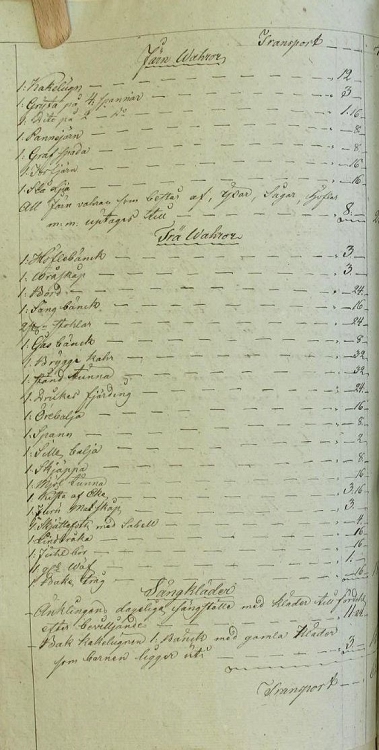 Transport
Järn Wahror
1. Kakelugn — 12
1. Gryta på 4 kannor — 3
1. Dito på 2 — D:o — 1.16
1. Pannjärn — 8
1. Graf spada — 8
16
16
All Järn wahran som består af, Yxor, Sågar, Hyflar
m:m: uptages till — 8
Trä Wahror
1. Höflebänck — 3
1. Wråskåp — 3
1. Bord — 24
1. Säng bänck — 16
2 st: Stohlar — 24
1. Gås bänck — 8
1. Brygge kahr — 32
1. Kånd tunna — 32
1. Drickes fjärding — 24
1. balja — 16
1. Spann — 8
1. Sille balja — 2
1. Skjäppa — 8
1. Mjöl tunna — 16
1. Kista af Eke — 3.16
1. Matskåp — 3
med — 4
1. Lindbråka — 16
16
1. Wäf — 1
1. Bake tråg — 16
Sängkläder
Änklingens dageliga sängställe med kläder till fördehl
efter bevilljande — 11.24
Bak kakelugnen 1. Bänck med gamla kläder
som barnen ligger uti — 3
Transport